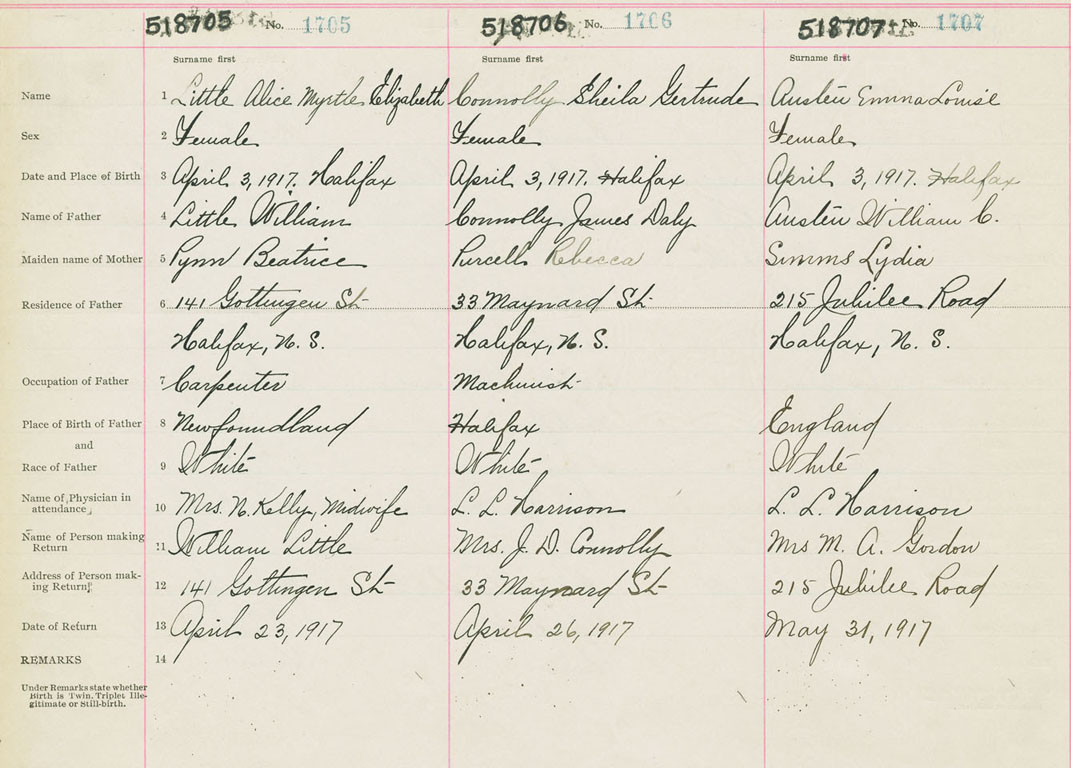 518705 No. 1705 518706 No. 1706 518707 No. 1707
Surname first Surname first Surname first
Name 1 Little Alice Myrtle Elizabeth Connolly Sheila Gertrude Austen Emma Louise
Sex 2 Female Female Female
Date and Place of Birth 3 April 3, 1917. Halifax April 3, 1917. Halifax April 3, 1917. Halifax
Name of Father 4 Little William Connolly James Daly Austen William C.
Maiden name of Mother 5 Pynn Beatrice Purcell Rebecca Simms Lydia
Residence of Father 6 141 Gottingen St 33 Maynard St 215 Jubilee Road
Halifax, N. S. Halifax, N. S. Halifax, N. S.
Occupation of Father 7 Carpenter Machinist
Place of Birth of Father 8 Newfoundland Halifax England
and
Race of Father 9 White White White
Name of Physician in
attendance 10 Mrs. N. Kelly, Midwife L. L. Harrison L. L. Harrison
Name of Person making
Return 11 William Little Mrs. J. D. Connolly Mrs M. A. Gordon
Address of Person mak-
ing Return 12 141 Gottingen St 33 Maynard St 215 Jubilee Road
Date of Return 13 April 23, 1917 April 26, 1917 May 31, 1917
REMARKS 14
Under Remarks state whether
Birth is Twin, Triplet Ille-
gitimate or Still-birth.